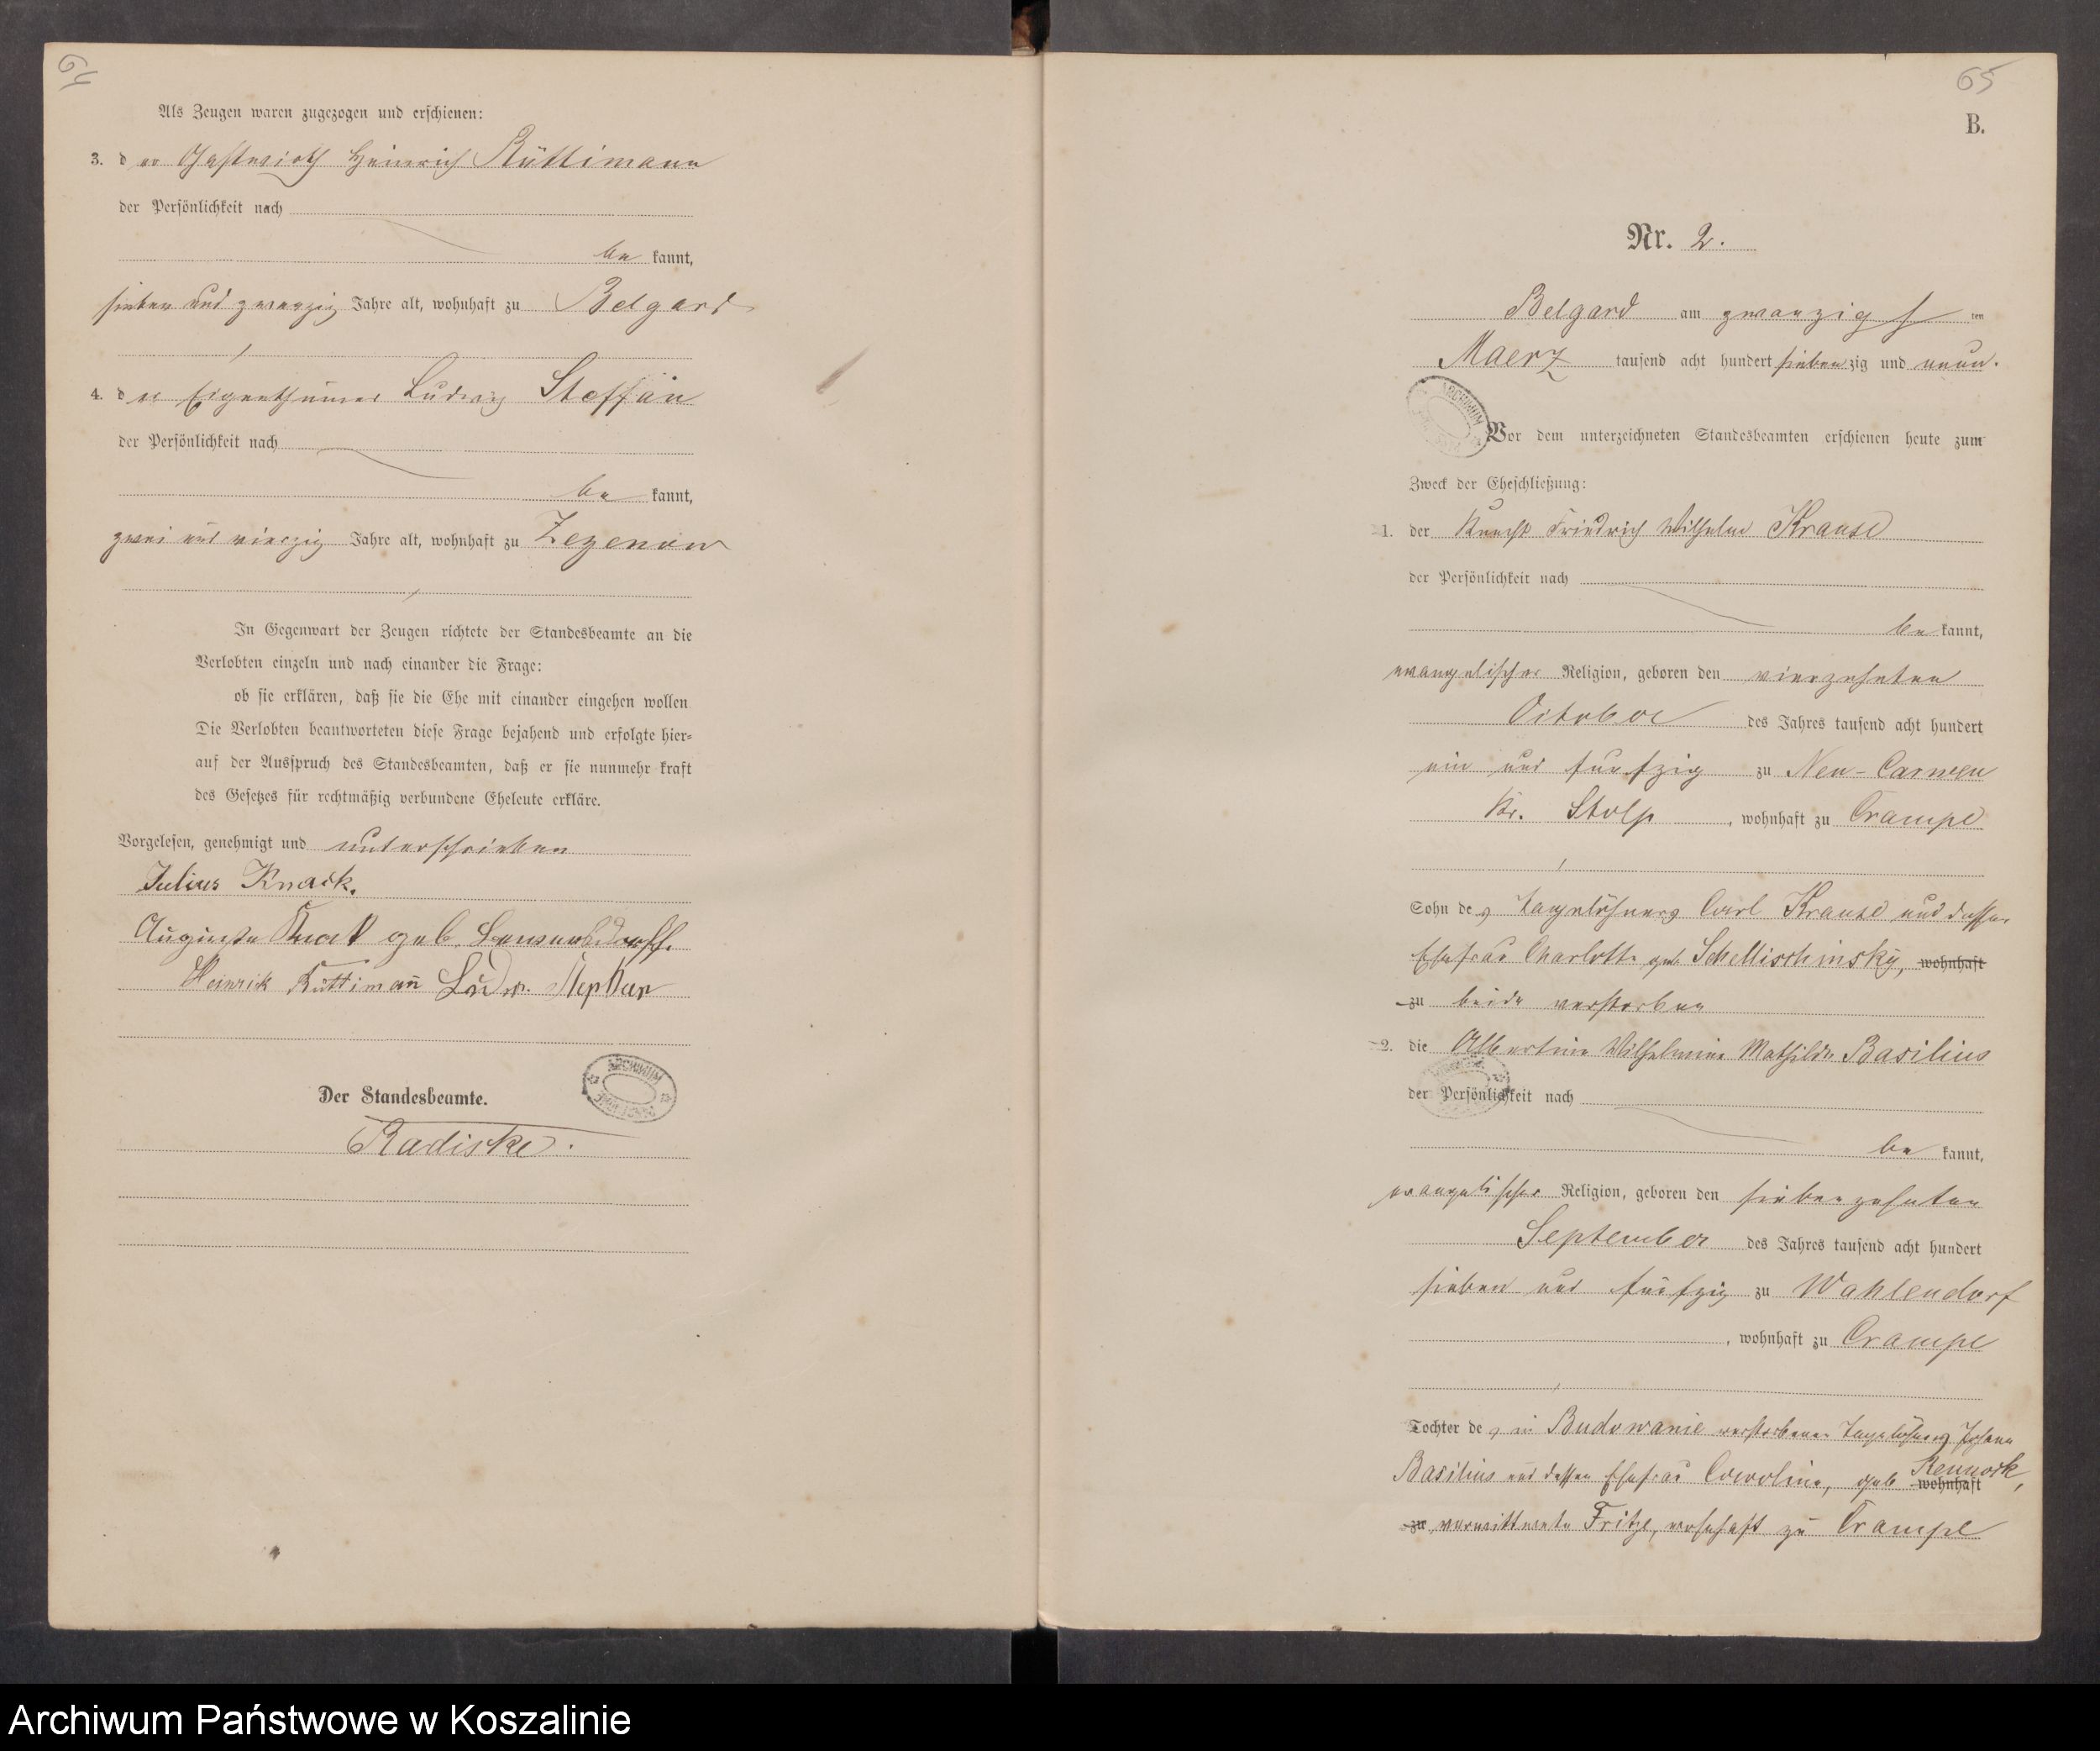 64
Als Zeugen waren zugezogen und erschienen:
3. der Gastwirth Heinrich Rüttimann
der Persönlichkeit nach
be kannt,
sieben und zwanzig Jahre alt, wohnhaft zu Belgard
4. der Eigenthümer Ludwig Steffan
der Persönlichkeit nach
be kannt,
zwei und vierzig Jahre alt, wohnhaft zu Zezenow
In Gegenwart der Zeugen richtete der Standesbeamte an die
Verlobten einzeln und nach einander die Frage:
ob sie erklären, daß sie die Ehe mit einander eingehen wollen
Die Verlobten beantworteten diese Frage bejahend und erfolgte hier-
auf der Ausspruch des Standesbeamten, daß er sie nunmehr kraft
des Gesetzes für rechtmäßig verbundene Eheleute erkläre.
Vorgelesen, genehmigt und unterschrieben
Julius Knack.
Auguste geb.
Heinrich Rüttimañ Ludw.
Der Standesbeamte.
ARCHIWUM
Radiske.
65
B.
Nr. 2.
Belgard am zwanzigsten
Maerz tausend acht hundert siebenzig und neun.
ARCHIWUM
Vor dem unterzeichneten Standesbeamten erschienen heute zum
Zweck der Eheschließung:
1. der Knecht Friedrich Wilhelm Krause
der Persönlichkeit nach
be kannt,
evangelischer Religion, geboren den vierzehnten
October des Jahres tausend acht hundert
ein und fünfzig zu Neu-Carwen
Kr. Stolp, wohnhaft zu Crampe
Sohn des Tagelöhners Carl Krause und dessen
Ehefrau Charlotte geb. Schellischinsky, wohnhaft
zu beide verstorben
2. die Albertine Wilhelmine Mathilde Basilius
der Persönlichkeit nach
be kannt,
evangelischer Religion, geboren den siebenzehnten
September des Jahres tausend acht hundert
sieben und fünfzig zu Wahlendorf
, wohnhaft zu Crampe
Tochter des in Budowanie verstorbenen Tagelöhners Johann
Basilius und dessen Ehefrau Caroline, geb wohnhaft
zu verwittwete Fritze, wohnhaft zu Crampe
Archiwum Państwowe w Koszalinie